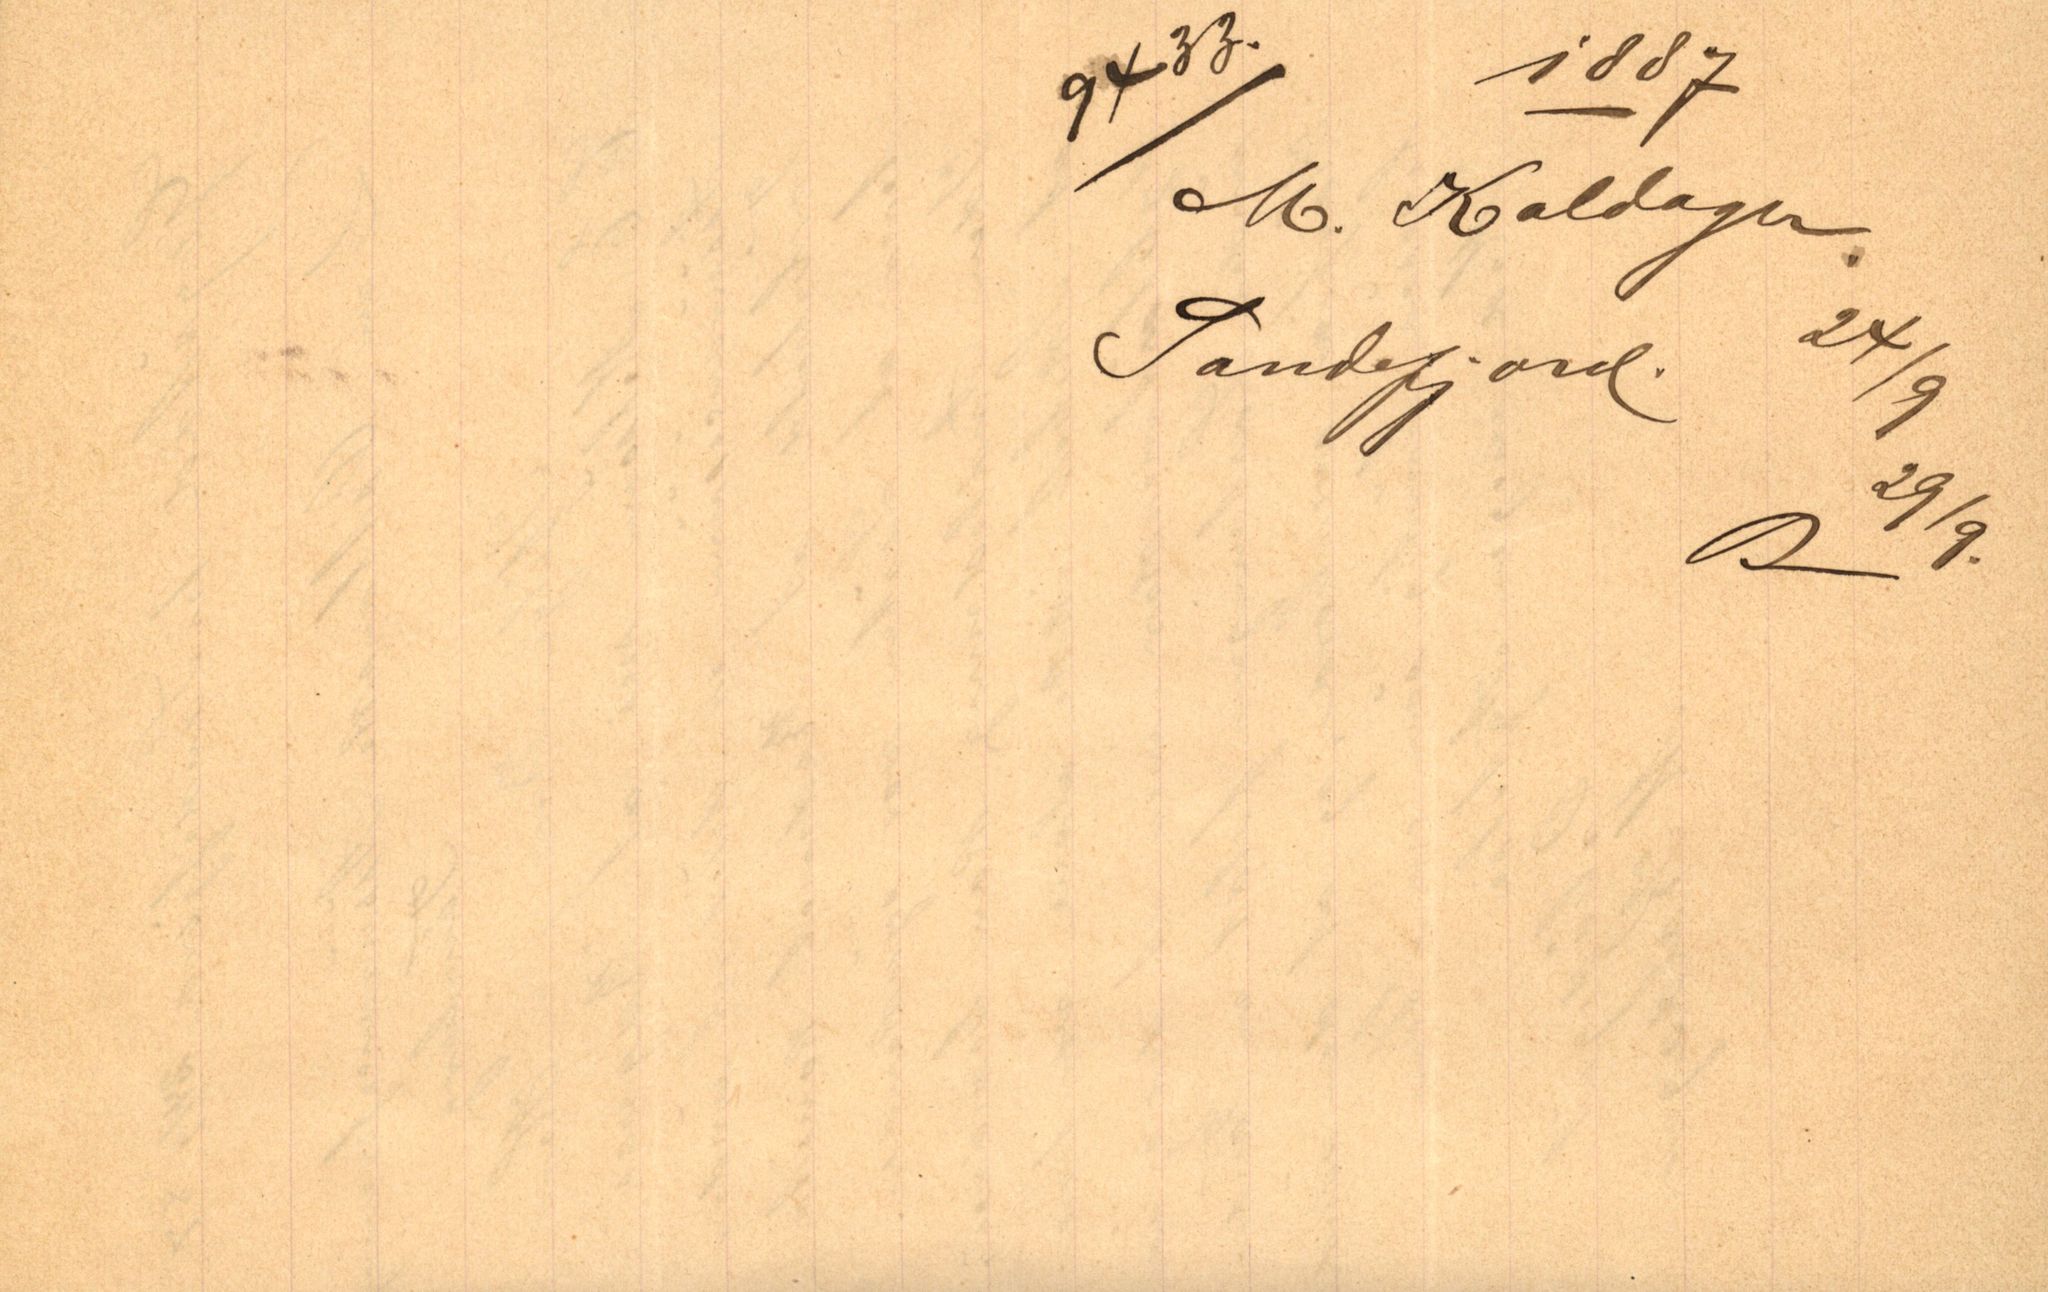 9433. 1887
M. Kaldager.
Sandefjord. 24/9
29/9.
B